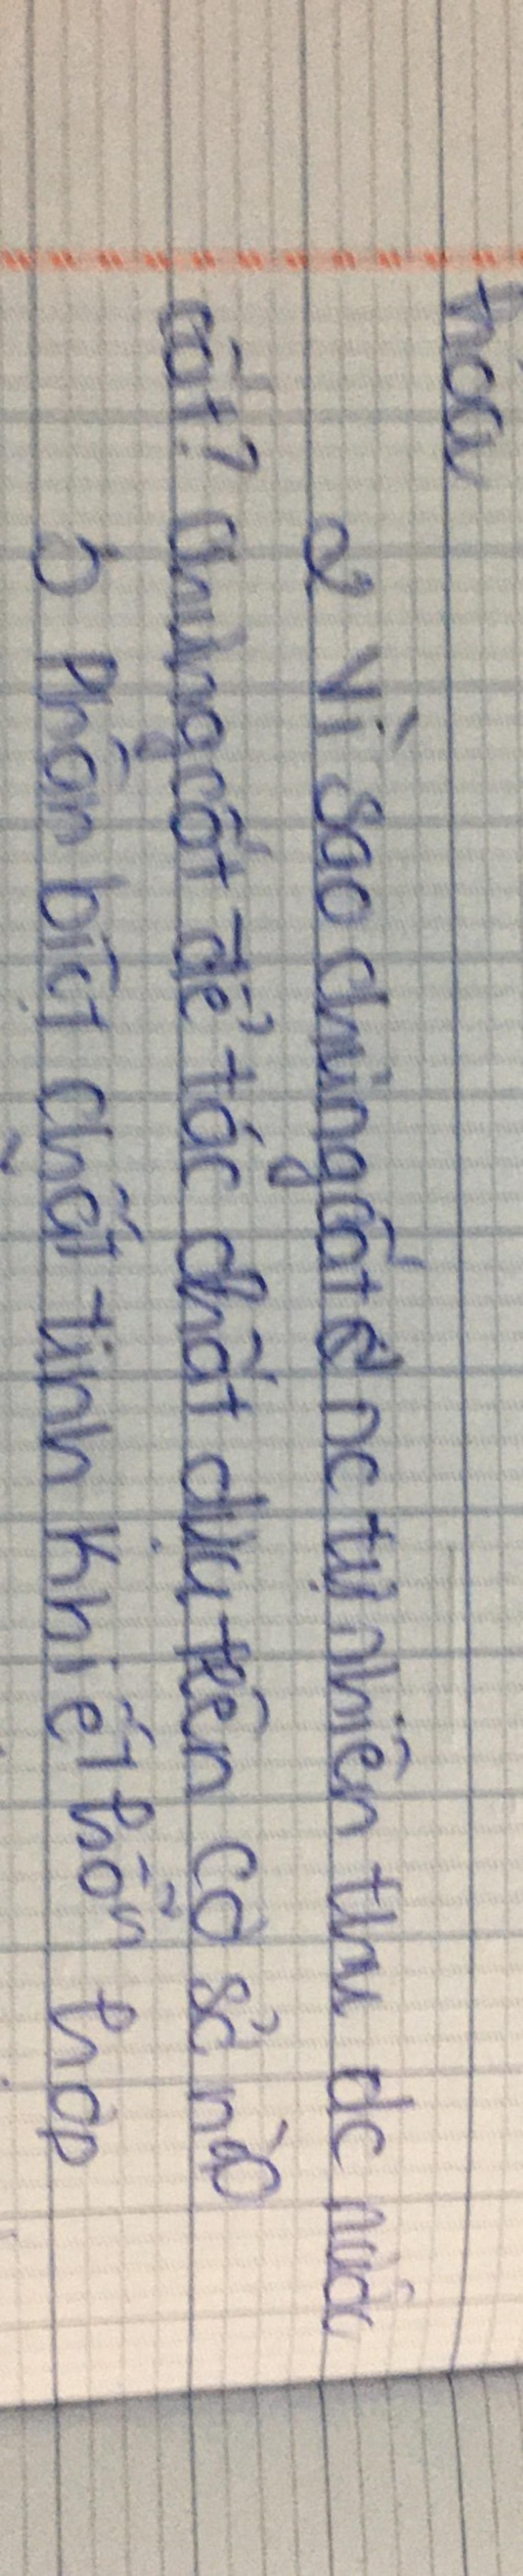 hóa
2 Vì sao chưng cất nc tự nhiên thu dc nước
cất? Chưng cất để tác chất dựu trên cơ sở nào
3 Phân biệt chất tinh khiết hỗn hợp